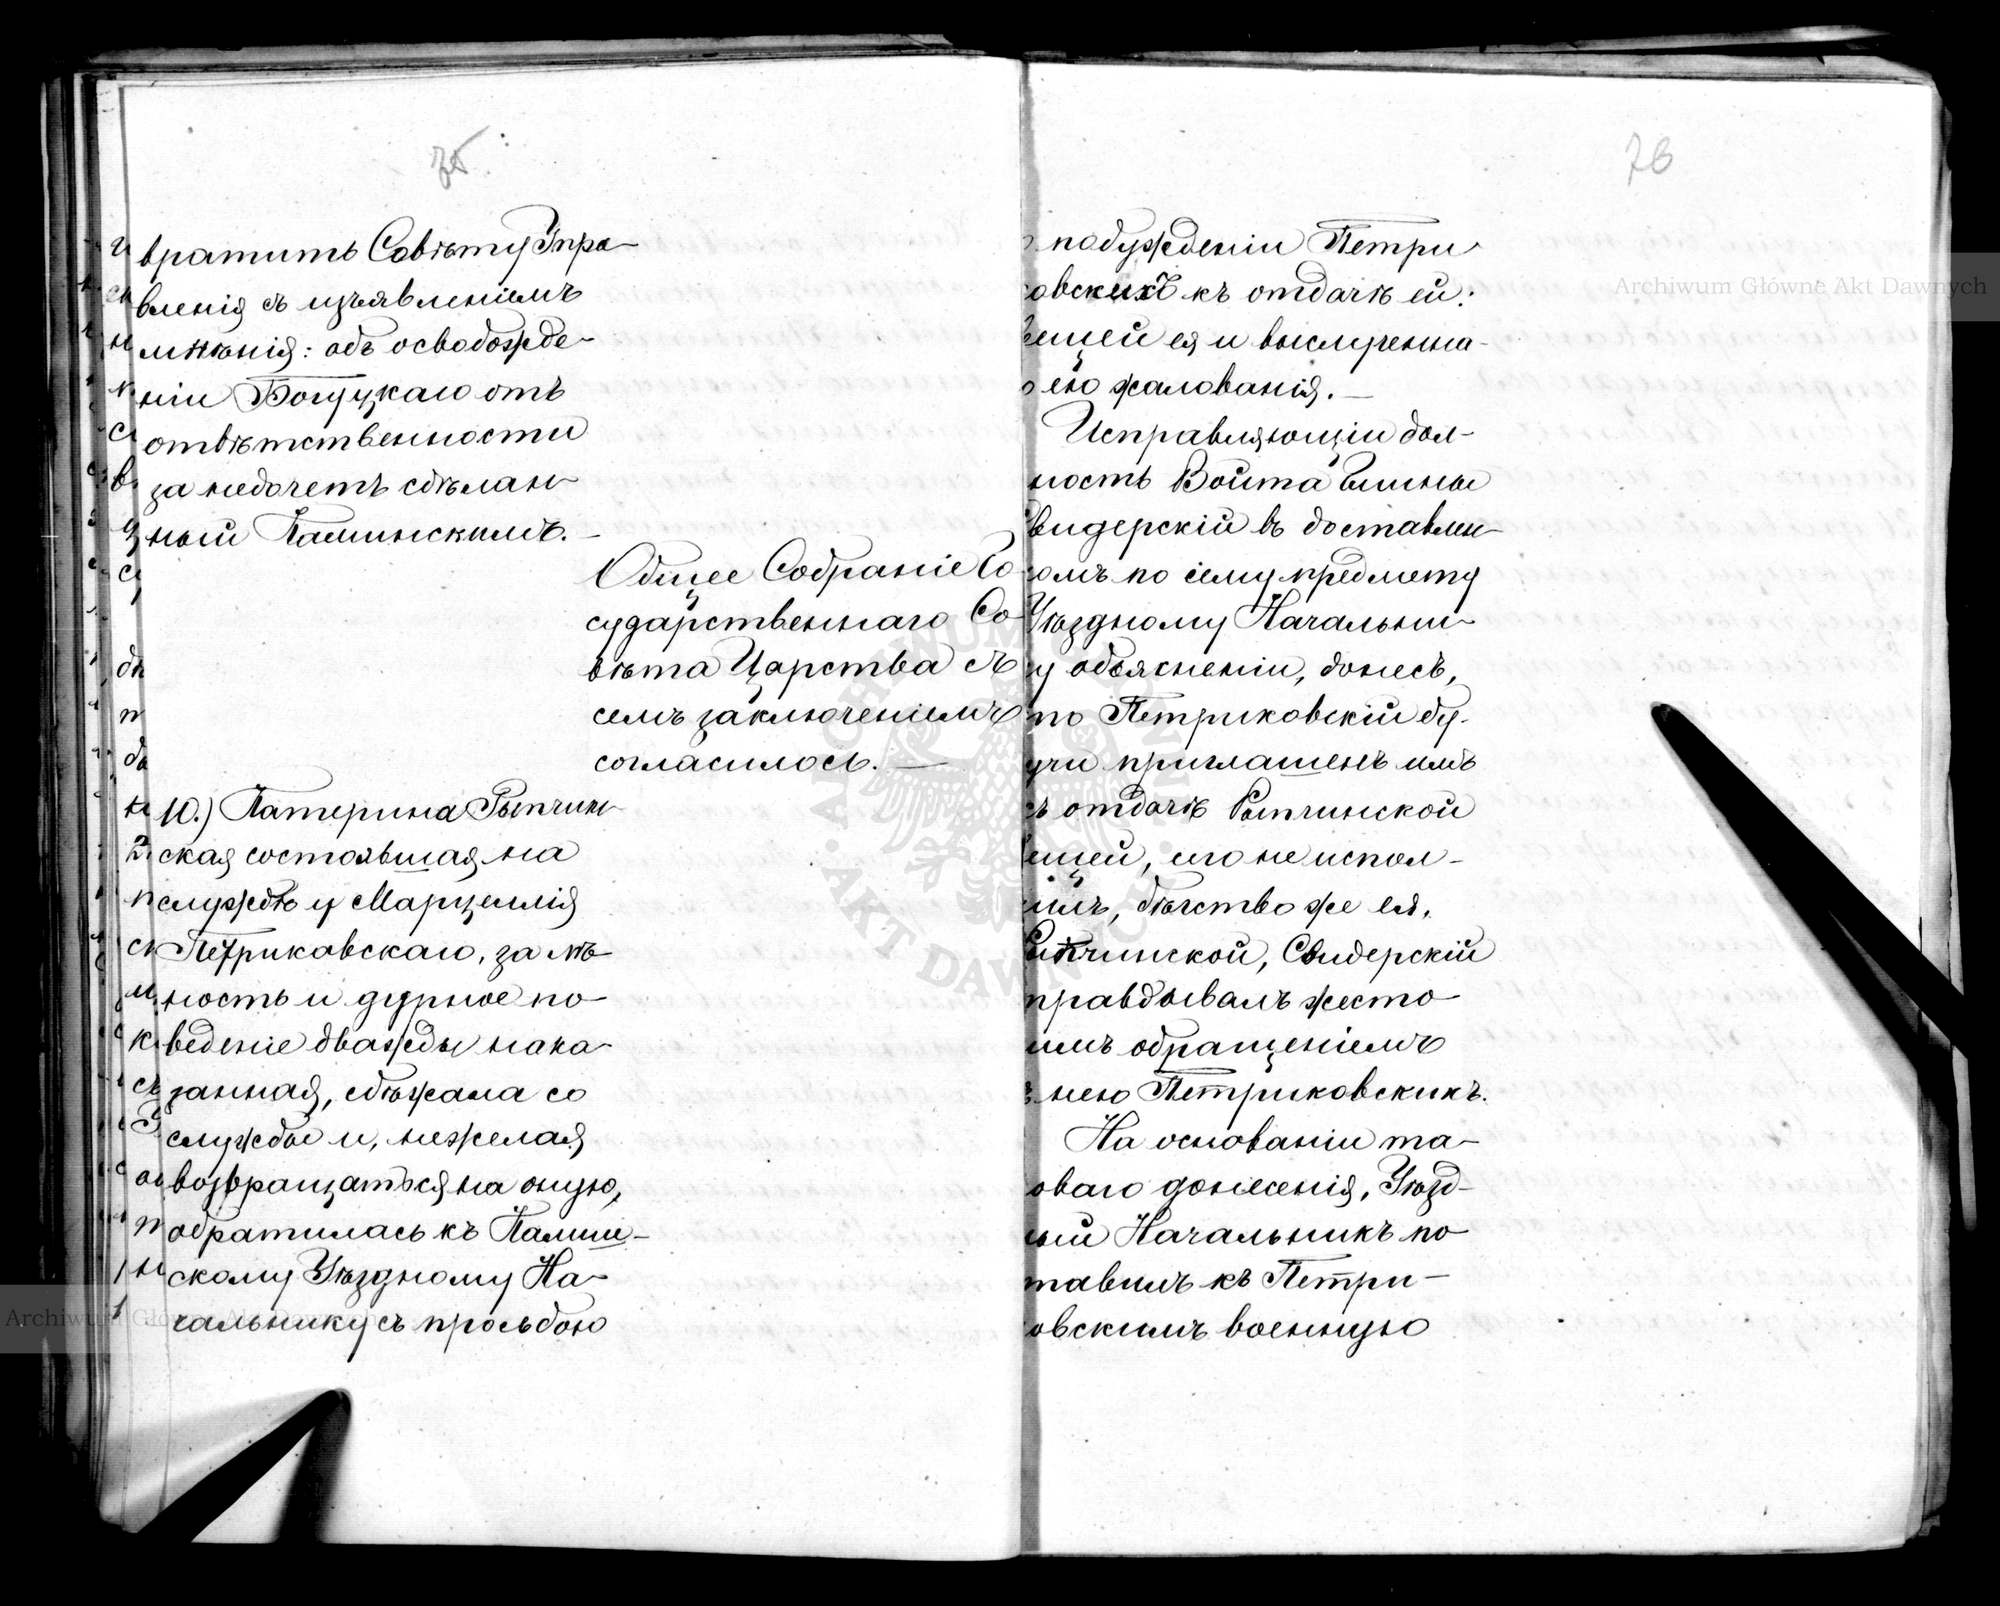 75
вратить Совѣту Упра-
вленія съ изъявленіемъ
мнѣнія: объ освобожде-
ніи от
отвѣтственности
за недочетъ сдѣлан-
ный Каминскимъ. –
Общее Собраніе Го-
сударственнаго Со-
вѣта Царства съ
симъ заключеніемъ
согласилось. —
10.) Катерина Рыпчин-
ская состоявшая на
службѣ у Марцеллія
Петриковскаго, за лѣ-
ность и дурное по-
веденіе дважды нака-
занная, сбѣжала со
службы и, нежелая
возвращаться на оную,
обратилась къ Калиш-
скому Уѣздному На-
чальнику съ просьбою
76
о побужденіи Петри-
овскихъ къ отдачѣ ей:
вещей ея и выслуженна-
ею жалованія. —
Исправляющій дол-
ность Войта Гмины
видерскій въ доставлен-
омъ по сему предмету
Уѣздному Начальни-
у объясненіи, донесъ,
то Петриковскій бу-
учи приглашенъ имъ
къ отдачѣ Рыпчинской
ещей, его не испол-
илъ, бѣгство же ея,
Рыпчинской, Свидерскій
правдывалъ жесто-
имъ обращеніемъ
съ нею Петриковскихъ.
На основаніи та-
оваго донесенія, Уѣзд-
ый Начальникъ по-
тавилъ къ Петри-
овскимъ военную
Archiwum Główne Akt Dawnych
Archiwum Główne Akt Dawnych